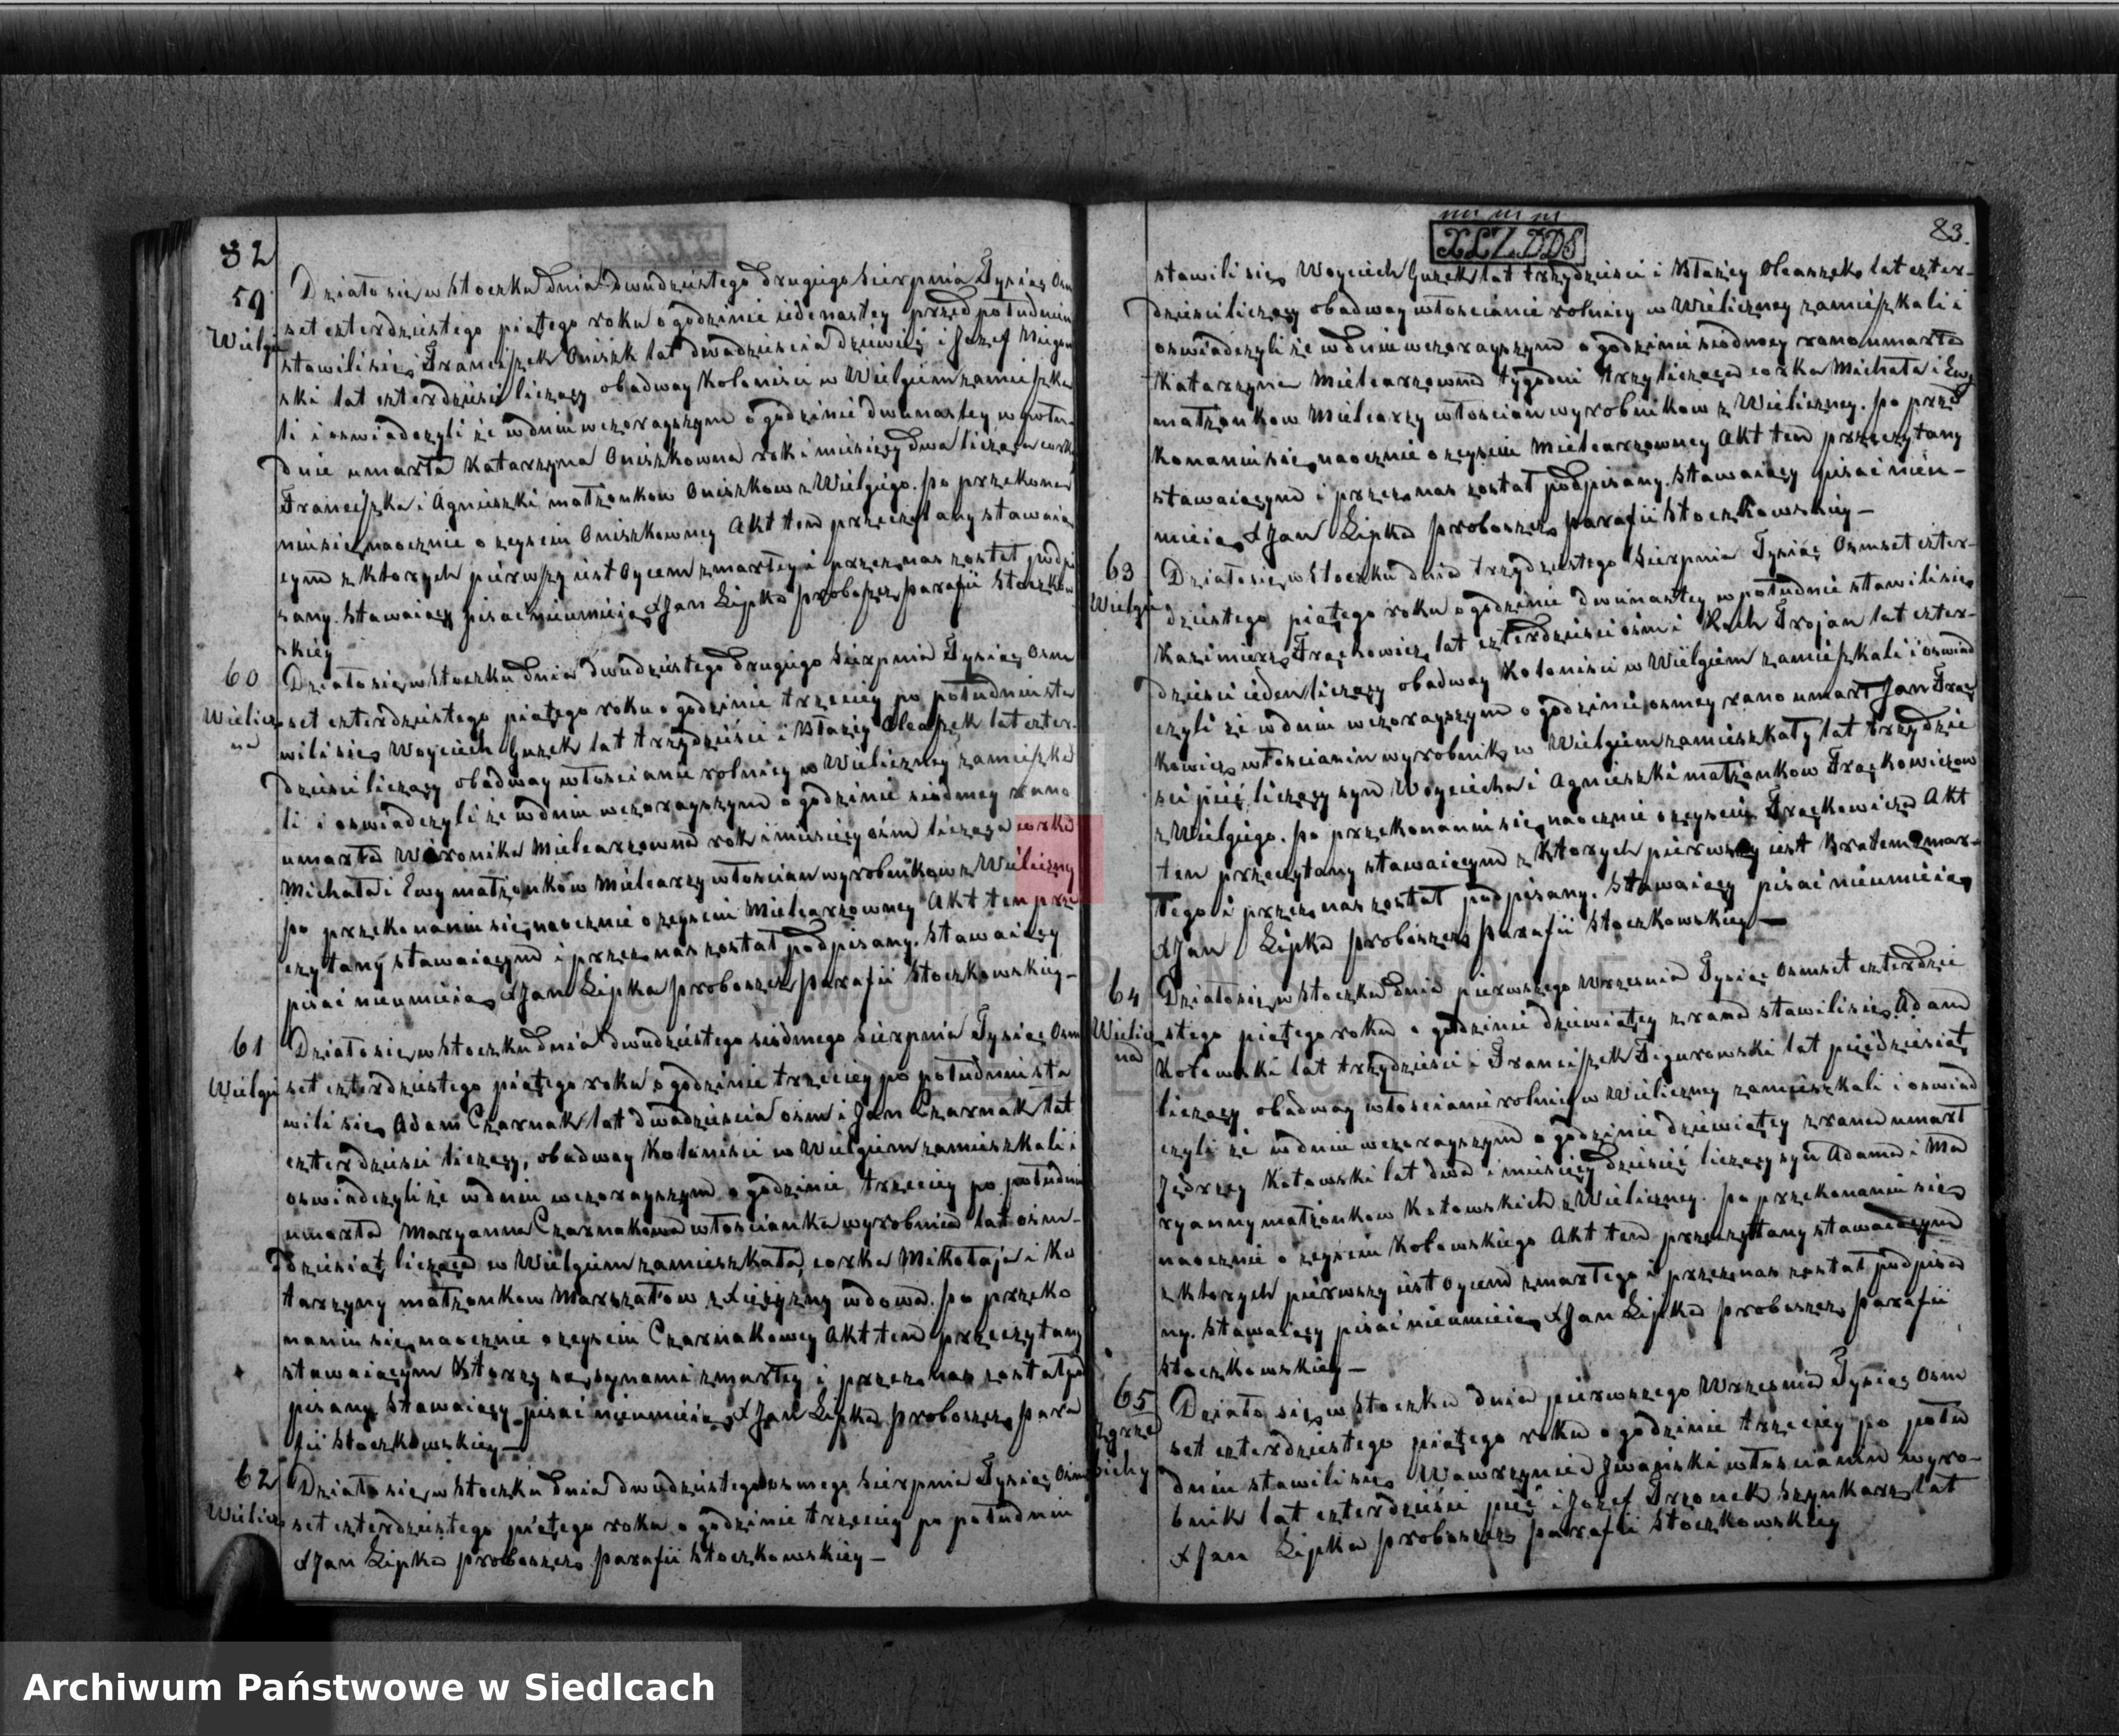 82
59
Wielgie
Działo się w Stoczku Dnia dwudziestego drugiego Sierpnia Tysiąc Osm
set czterdziestego piątego roku o godzinie iedenastey przed południem
stawili się Franciszek Oniszk lat dwadzieścia dziewięć i Jozef
ski lat czterdzieści liczący obadway Koloniści w Wielgiem zamieszka
li i oswiadczyli że w dniu wczorayszym o godzinie dwunastey w połu-
dnie umarła Katarzyna Oniszkowna rok i miesięcy dwa licząca corka
Franciszka i Agnieszki małżonkow Oniszkow z Wielgiego. Po przekona
niu się naocznie o zeysciu Oniszkowney Akt ten przeczytany stawaią
cym z ktorych pierwszy iest Oycem zmarłey i przez nas został podpi
sany. Stawaiący pisać nieumieią X Jan Lipka Proboszcz Parafii Stoczkow
skiey
60
Wielicz
na
Działo się w Stoczku Dnia dwudziestego drugiego Sierpnia Tysiąc Osm
set czterdziestego piątego roku o godzinie trzeciey po południu sta
wili się Woyciech Guzek lat trzydzieści i Błażey Oleaszek lat czter-
dzieści liczący obadway włoscianie rolnicy w Wieliczney zamieszka
li i oswiadczyli że w dniu wczorayszym o godzinie siódmey rano
umarła Weronika Mielcarzowna rok i miesięcy ośm licząca corka
Michała i Ewy małżonków Mielcarzy włoscian wyrobnikow z Wieliczny
po przekonaniu się naocznie o zeysciu Mielcarzowney Akt ten prze
czytany stawaiącym i przez nas został podpisany. Stawaiący
pisać nieumieią X Jan Lipka Proboszcz Parafii Stoczkowskiey-
61
Wielgie
Działo się w Stoczku Dnia dwudziestego siódmego Sierpnia Tysiąc Osm
set czterdziestego piątego roku o godzinie trzeciey po południu sta
wili się Adam Czarnak lat dwadzieścia ośm i Jan Czarnak lat
czterdzieści liczący, obadway Koloniści w Wielgiem zamieszkali i
oswiadczyli że w dniu wczorayszym o godzinie trzeciey po południu
umarła Maryanna Czarnakowa włoscianka wyrobnica lat ośm-
dziesiąt licząca w Wielgiem zamieszkała, corka Mikołaja i Ka
tarzyny małżonkow Marszałow z wdowa. Po przeko
naniu się naocznie o zeysciu Czarnakowey Akt ten przeczytany
stawaiącym Ktorzy są synami zmarłey i przez nas został pod
pisany. Stawaiący pisać nieumieią X Jan Lipka Proboszcz Para
fii Stoczkowskiey-
62
Wielicz
Działo się w Stoczku Dnia dwudziestego osmego Sierpnia Tysiąc Osm
set czterdziestego piątego roku o godzinie trzeciey po południu
X Jan Lipka Proboszcz Parafii Stoczkowskiey-
83.
stawili się Woyciech Guzek lat trzydzieści i Błażey Oleaszek lat czter-
dzieści liczący obadway włoscianie rolnicy w Wieliczney zamieszkali i
oswiadczyli że w dniu wczorayszym o godzinie siodmey rano umarła
Katarzyna Mielcarzowna tygodni trzy licząca corka Michała i Ewy
małżonkow Mielcarzy włoscian wyrobnikow z Wieliczney. Po prze
konaniu się naocznie o zeysciu Mielcarzowney Akt ten przeczytany
stawaiącym i przez nas został podpisany. Stawaiący pisać nieu-
mieią X Jan Lipka Proboszcz Parafii Stoczkowskiey-
63
Wielgie
Działo się w Stoczku dnia trzydziestego Sierpnia Tysiąc Osmset czter-
dziestego piątego roku o godzinie dwunastey w południe stawili się
Kazimierz Frąckowicz lat czterdzieści ośm i Roch Trojan lat czter-
dzieści ieden liczący obadway Koloniści w Wielgiem zamieszkali i oswiad
czyli że w dniu wczorayszym o godzinie osmey rano umarł Jan Frąc
kowicz włoscianin wyrobnik w Wielgiem zamieszkały lat trzydzie
ści pięć liczący syn Woyciecha i Agnieszki małżonkow Frąckowiczow
z Wielgiego. Po przekonaniu się naocznie o zeysciu Frąckowicza Akt
ten przeczytany stawaiącym z Ktorych pierwszy iest Bratem zmar-
łego i przez nas został podpisany. Stawaiący pisać nieumieią
X Jan Lipka Proboszcz Parafii Stoczkowskiey-
64
Wielicz
na
Działo się w Stoczku Dnia pierwszego Września Tysiąc Osmset czterdzie
stego piątego roku o godzinie dziewiątey z rana stawili się Adam
Kołowski lat trzydzieści i Franciszek Figurowski lat pięćdziesiąt
liczący obadway włoscianie rolnicy w Wieliczney zamieszkali i oswiad
czyli że w dniu wczorayszym o godzinie dziewiątey z rana umarł
Jędrzey Kołowski lat dwa i miesięcy dziesięć liczący syn Adama i Ma
ryanny małżonkow Kołowskich z Wieliczney. Po przekonaniu się
naocznie o zeysciu Kołowskiego Akt ten przeczytany stawaiącym
z ktorych pierwszy iest oycem zmarłego i przez nas został podpisa
ny. Stawaiący pisać nieumieią X Jan Lipka Proboszcz Parafii
Stoczkowskiey-
65
Zgrze
bichy
Działo się w Stoczku dnia pierwszego Września Tysiąc Osm
set czterdziestego piątego roku o godzinie trzeciey po połu
dniu stawili się Wawrzyniec Jwański włoscianin wyro-
bnik lat czterdzieści pięć i Jozef Szynkarz lat
X Jan Lipka Proboszcz Parafii Stoczkowskiey
Archiwum Państwowe w Siedlcach